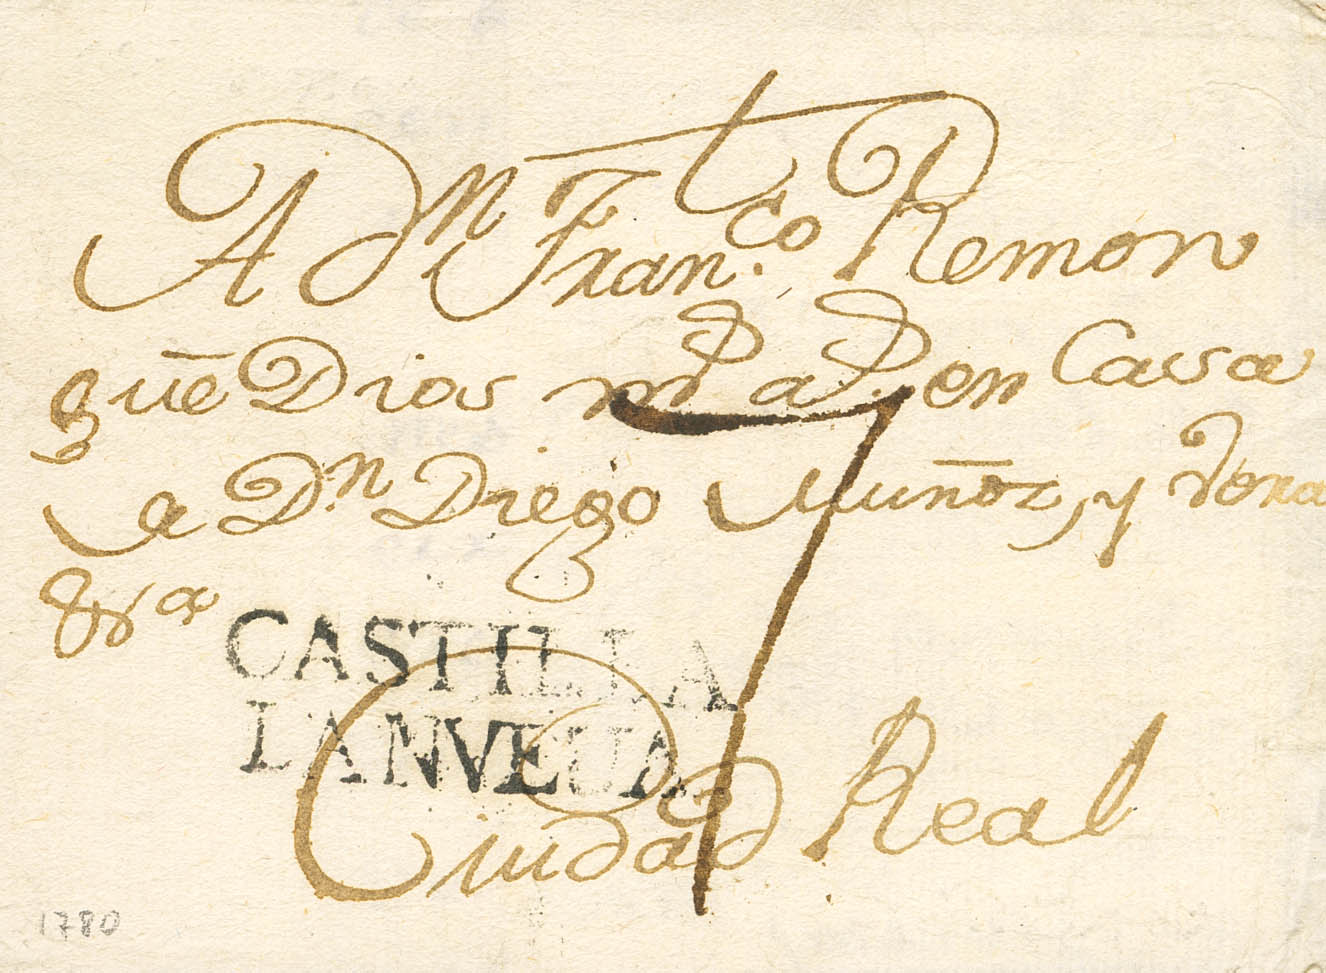 A Dn Franco Remon
que Dios md ad en Casa
a Dn Diego Muñoz, y Vera
&ra
CASTILLA
LANVEUA
7
Ciudad Real
1780